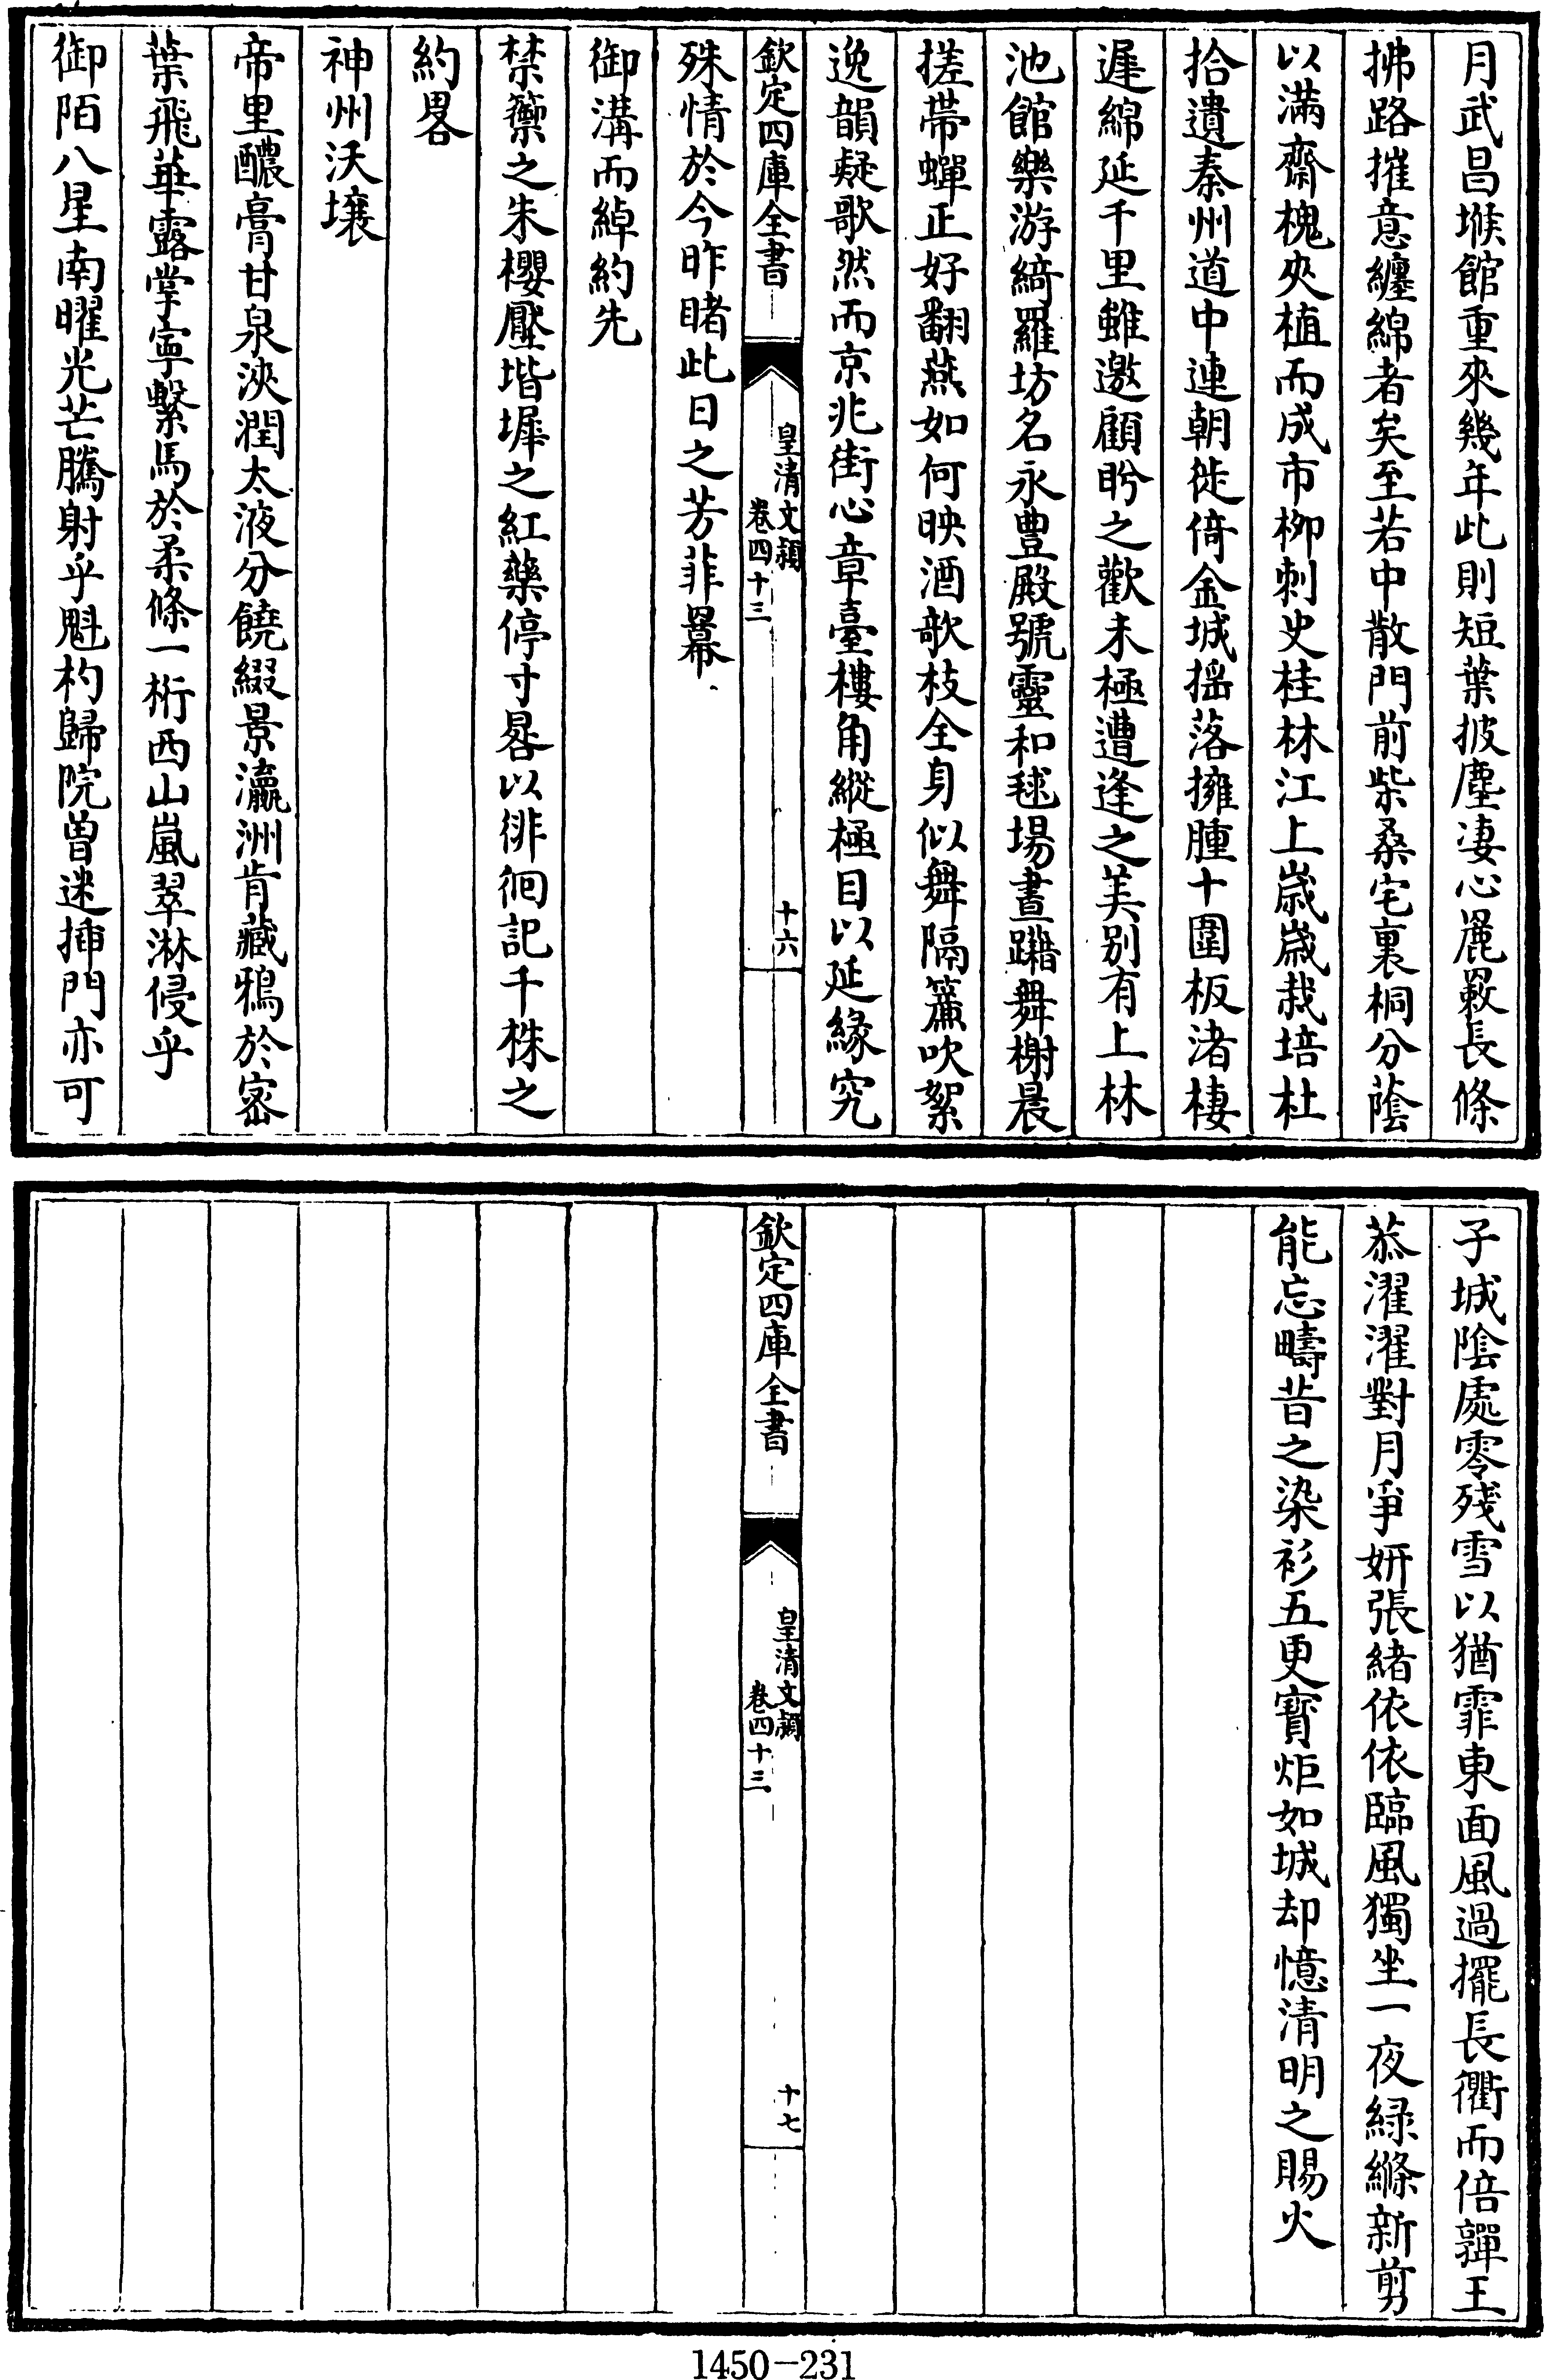 月武昌堠館重來幾年此則短葉披塵凄心罷斁長條
拂路摧意纏綿者矣至若中散門前柴桑宅裏桐分蔭
以滿齋槐夾植而成市柳刺史桂林江上歳歳栽培杜
拾遺秦州道中連朝徙倚金城揺落擁腫十圍板渚棲
遲綿延千里雖邀顧盼之歡未極遭逢之美别有上林
池館樂游綺羅坊名永豊殿號靈和毬場晝躤舞榭晨
搓帶蟬正好翻燕如何映酒歌枝全身似舞隔簾吹絮
逸韻疑歌然而京兆街心章臺樓角縱極目以延緣究
欽定四庫全書
皇清文穎
卷四十三
十六
殊情於今昨睹此日之芳菲羃
御溝而綽約先
禁籞之朱櫻壓堦墀之紅藥停寸晷以徘徊記千株之
約畧
神州沃壤
帝里醲膏甘泉浹潤太液分饒綴景瀛洲肯藏鴉於密
葉飛華露掌寧繫馬於柔條一桁西山嵐翠淋侵乎
御陌八星南曜光芒騰射乎魁杓歸院曾迷揷門亦可
子城陰處零殘雪以猶霏東面風過擺長衢而倍嚲王
恭濯濯對月爭妍張緒依依臨風獨坐一夜緑縧新剪
能忘疇昔之染衫五更寳炬如城却憶清明之賜火
欽定四庫全書
皇清文穎
卷四十三
十七
1450-231